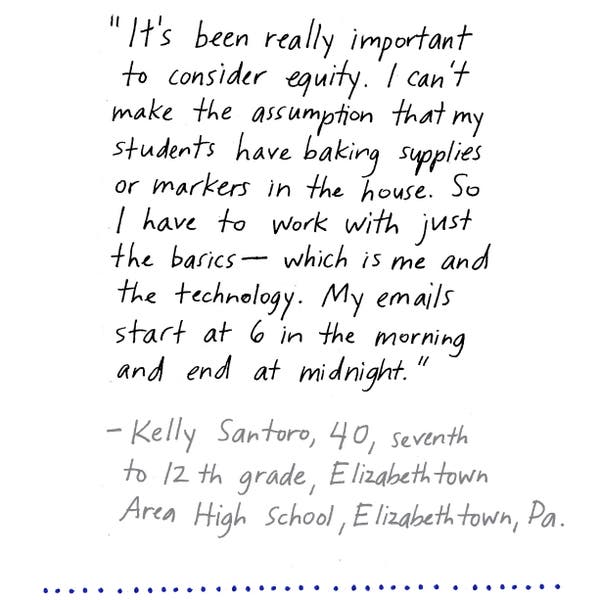 "It's been really important
to consider equity. I can't
make the assumption that my
students have baking supplies
or markers in the house. So
I have to work with just
the basics— which is me and
the technology. My emails
start at 6 in the morning
and end at midnight."
– Kelly Santoro, 40, seventh
to 12th grade, Elizabethtown
Area High School, Elizabethtown, Pa.